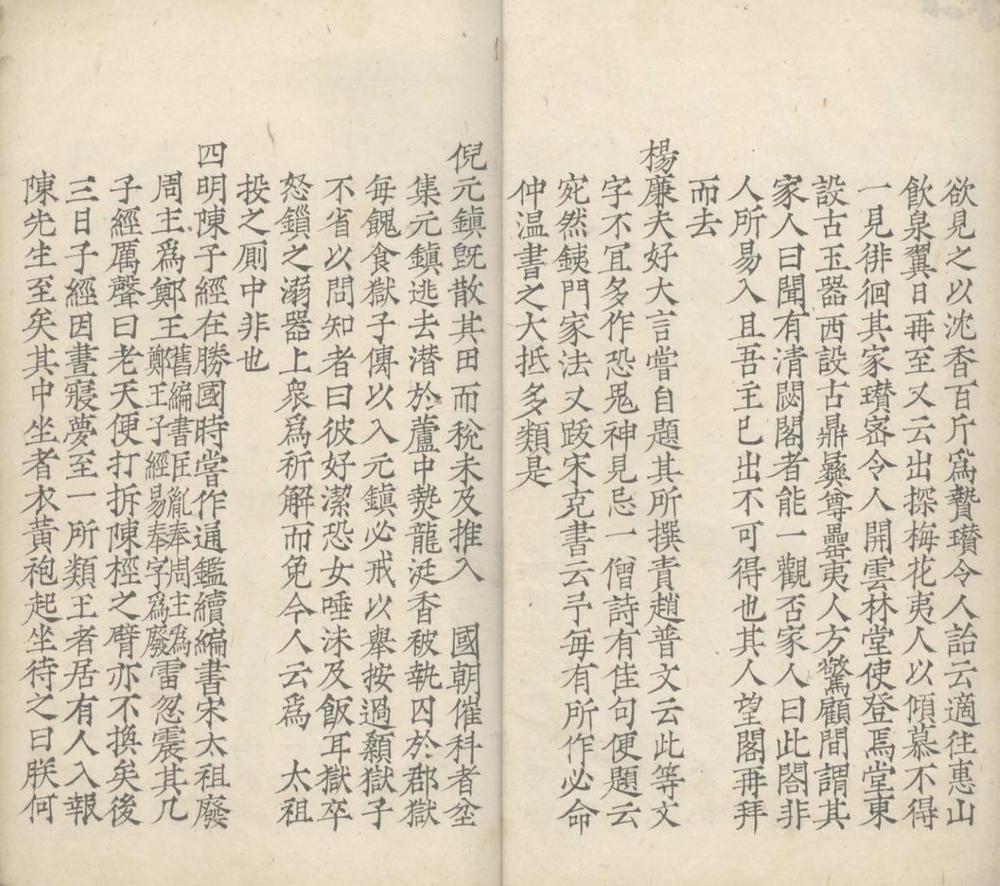 欲見之以沈香百斤爲贄瓚令人詒云適往惠山
飲泉翼日再至又云出探梅花夷人以傾慕不得
一見徘徊其家瓚密令人開雲林堂使登焉堂東
設古玉器西設古鼎彝尊罍夷人方驚顧間謂其
家人曰聞有清閟閣者能一觀否家人曰此閣非
人所易入且吾主已出不可得也其人望閣再拜
而去
楊廉夫好大言嘗自題其所撰責趙普文云此等文
字不宜多作恐鬼神見忌一僧詩有佳句便題云
宛然銕門家法又跋宋克書云予每有所作必命
仲温書之大抵多類是
倪元鎮旣散其田而稅未及推入　國朝催科者坌
集元鎮逃去潜於蘆中爇龍涎香被執囚於郡獄
每餽食獄子傳以入元鎮必戒以舉按過顙獄子
不省以問知者曰彼好潔恐女唾沫及飯耳獄卒
怒鎖之溺器上衆爲祈解而免今人云爲　太祖
投之厠中非也
四明陳子經在勝國時嘗作通鑑續編書宋太祖廢
周主爲鄭王舊編書匡胤奉周主爲鄭王子經易奉字爲廢雷忽震其几
子經厲聲曰老天便打拆陳桱之臂亦不換矣後
三日子經因晝寢夢至一所類王者居有人入報
陳先生至矣其中坐者衣黃袍起坐待之曰朕何